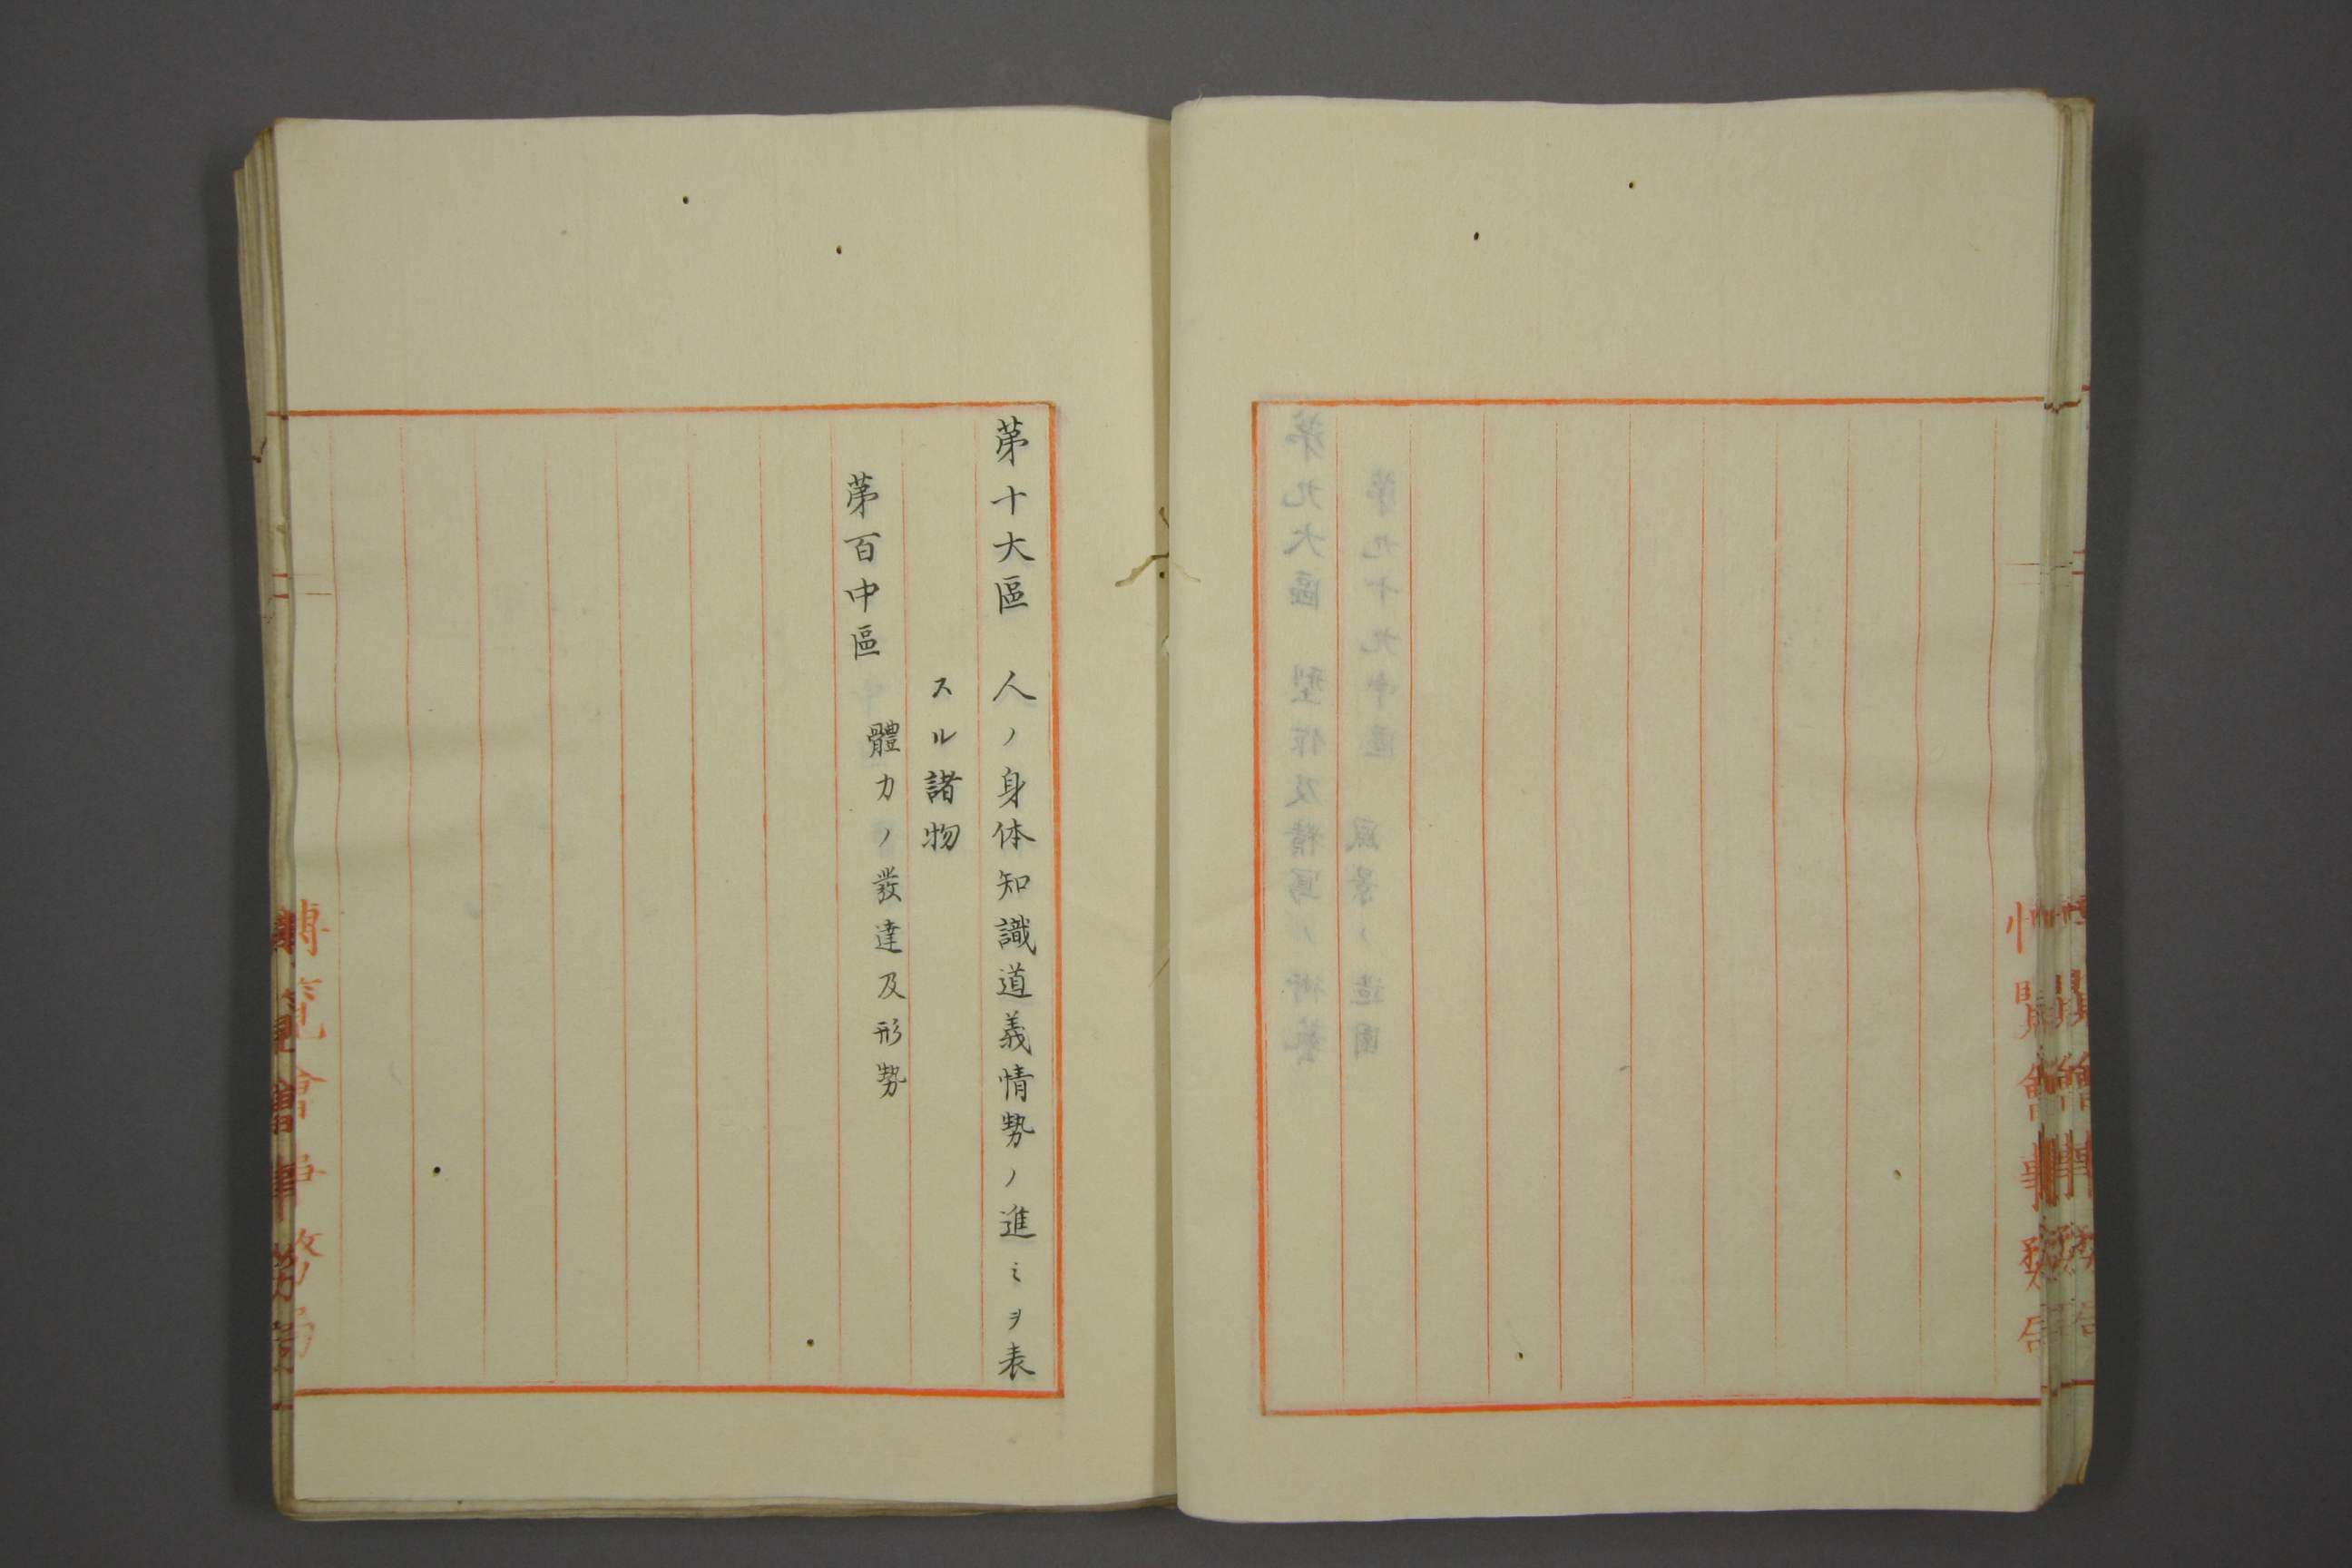 博覧會事務局
第十大區　人ノ身体知識道義情勢ノ進ミヲ表
スル諸物
第百中區
體力ノ發達及形勢
博覧會事務局